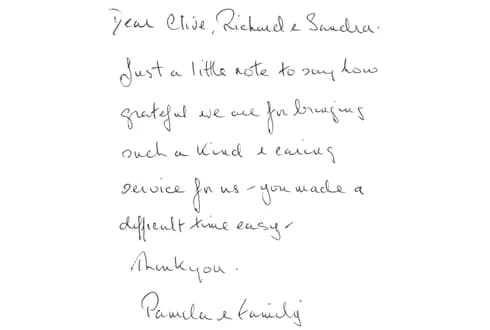 Dear Clive, Richard & Sandra.
Just a little note to say how
grateful we are for bringing
such a kind & caring
service for us - you made a
difficult time easy -
Thank you.
Pamela & Family